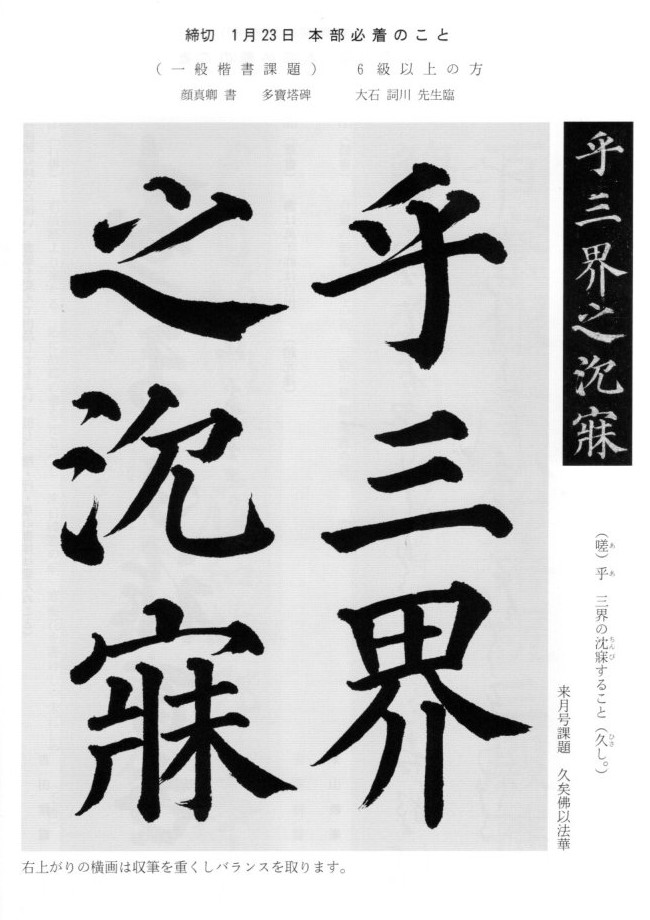 締切 1月23日 本部必着のこと
(一般楷書課題) 6級以上の方
顔真卿 書 多寶塔碑 大石 詞川 先生臨
乎三界之沈寐
乎三界
之沈寐
(嗟)乎 三界の沈寐すること(久し。)
ああ ちんび ひさ
来月号課題 久矣佛以法華
右上がりの横画は収筆を重くしバランスを取ります。